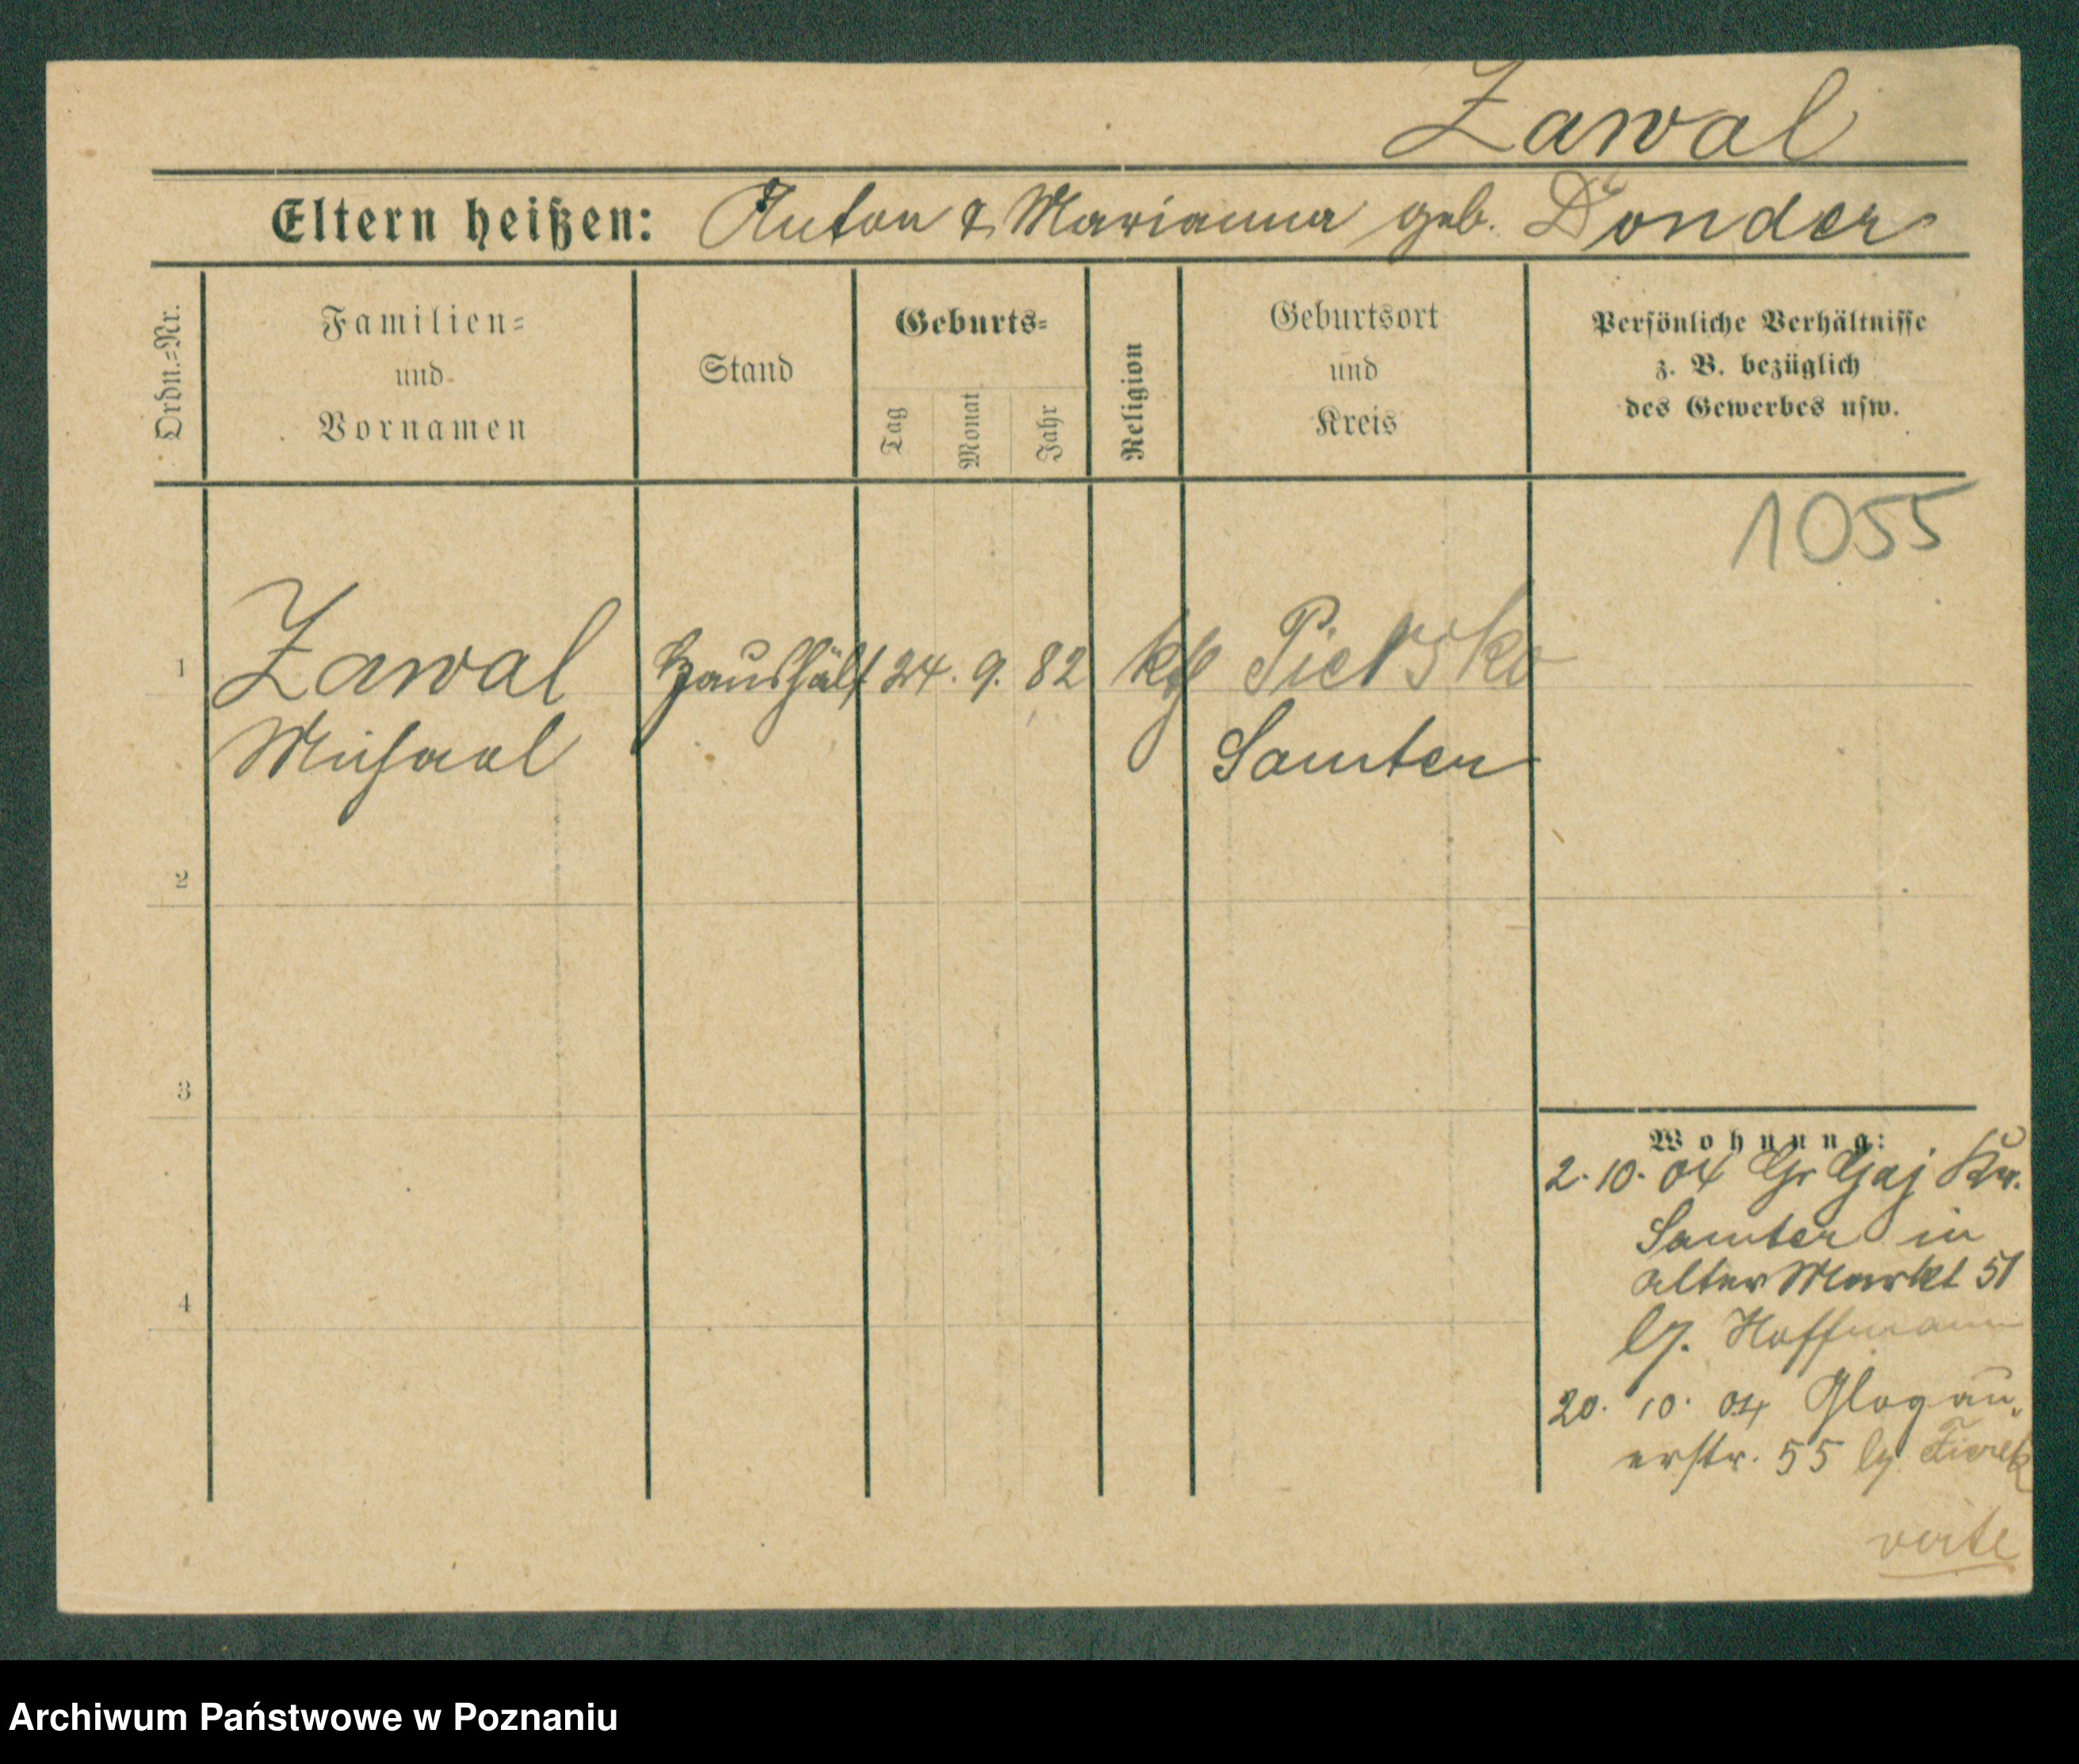 Zawal
Eltern heißen: Anton & Marianna geb. Donder
Ordn.=Nr.
Familien=
und
Vornamen
Stand
Geburts=
Tag
Monat
Jahr
Religion
Geburtsort
und
Kreis
Persönliche Verhältnisse
z. B. bezüglich
des Gewerbes usw.
1055
1 Zawal Haushält 24. 9. 82 kth Piersko
Michael Samter
2
3
4
Wohnung:
2. 10. 04 Gr Gaj Kr.
Samter in
Alter Markt 51
Hoffmann
20. 10. 04 Glogau-
erstr. 55
verte
Archiwum Państwowe w Poznaniu